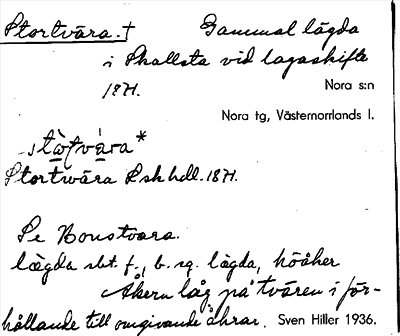 Stortvära. † Gammal lägda
i Skallsta vid lagaskifte
1871.
Nora s:n
Nora tg, Västernorrlands l.
stòtvàra*
Stortwära Lskhdl. 1871.
Se Bonstvara.
lägda sbt. f., b. sg. lägda, höåker
Åkern låg på tvären i för-
hållande till omgivande åkrar. Sven Hiller 1936.